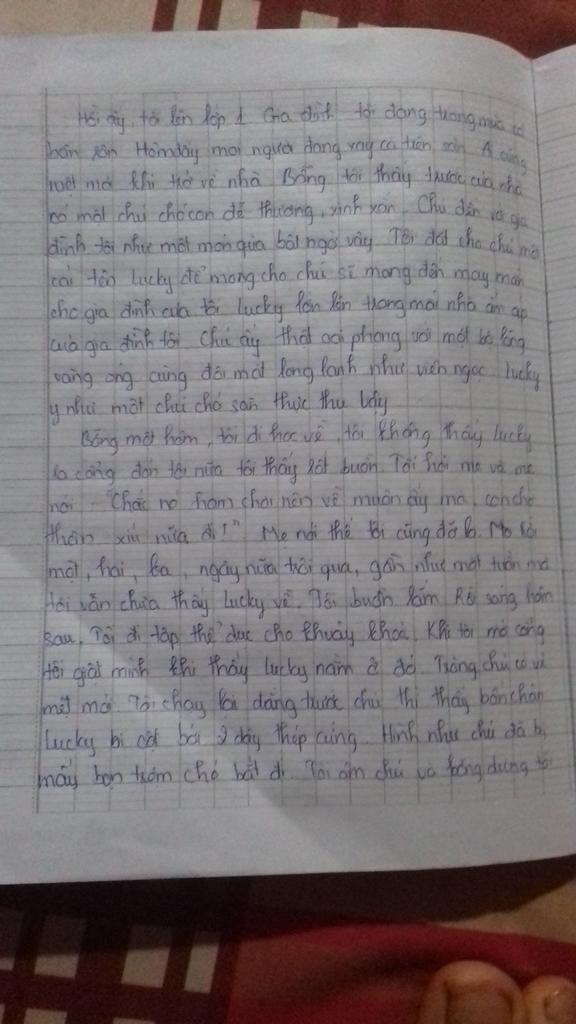 Hồi ấy, tôi lên lớp 1 Gia đình tôi đang trong mùa
bán Hôm đấy mọi người đang Ai cũng
mệt mỏi khi trở về nhà Bỗng tôi thấy trước cửa nhà
có một chú chó con dễ thương, xinh xắn. Chú đến với gia
đình tôi như một món quà bất ngờ vậy Tôi đặt cho chú một
cái tên Lucky để mong cho chú sẽ mang đến may mắn
cho gia đình của tôi Lucky lớn lên trong mái nhà ấm áp
của gia đình tôi Chú ấy thật oai phong với một bộ lông
vàng óng cùng đôi mắt long lanh như viên ngọc Lucky
y như một chú chó săn thực thụ vậy
Bỗng một hôm, tôi đi học về, tôi không thấy Lucky
ra cổng đón tôi nữa tôi thấy rất buồn. Tôi hỏi mẹ và mẹ
nói "Chắc nó ham chơi nên về muộn ấy mà, con chờ
thêm xíu nữa đi!" Mẹ nói thế tôi cũng đỡ lo. Mà rồi
một, hai, ba, ngày nữa trôi qua, gần như một tuần mà
tôi vẫn chưa thấy Lucky về. Tôi buồn lắm Rồi sang hôm
sau, Tôi đi tập thể dục cho khuây khoả. Khi tôi mở cổng
tôi giật mình khi thấy Lucky nằm ở đó. Trông chú có vẻ
mệt mỏi Tôi chạy lại đằng trước chú thì thấy bốn chân
Lucky bị cột bởi 2 dây thép cứng. Hình như chú đã bị
mấy bọn trộm chó bắt đi. Tôi ôm chú và bỗng dưng tôi